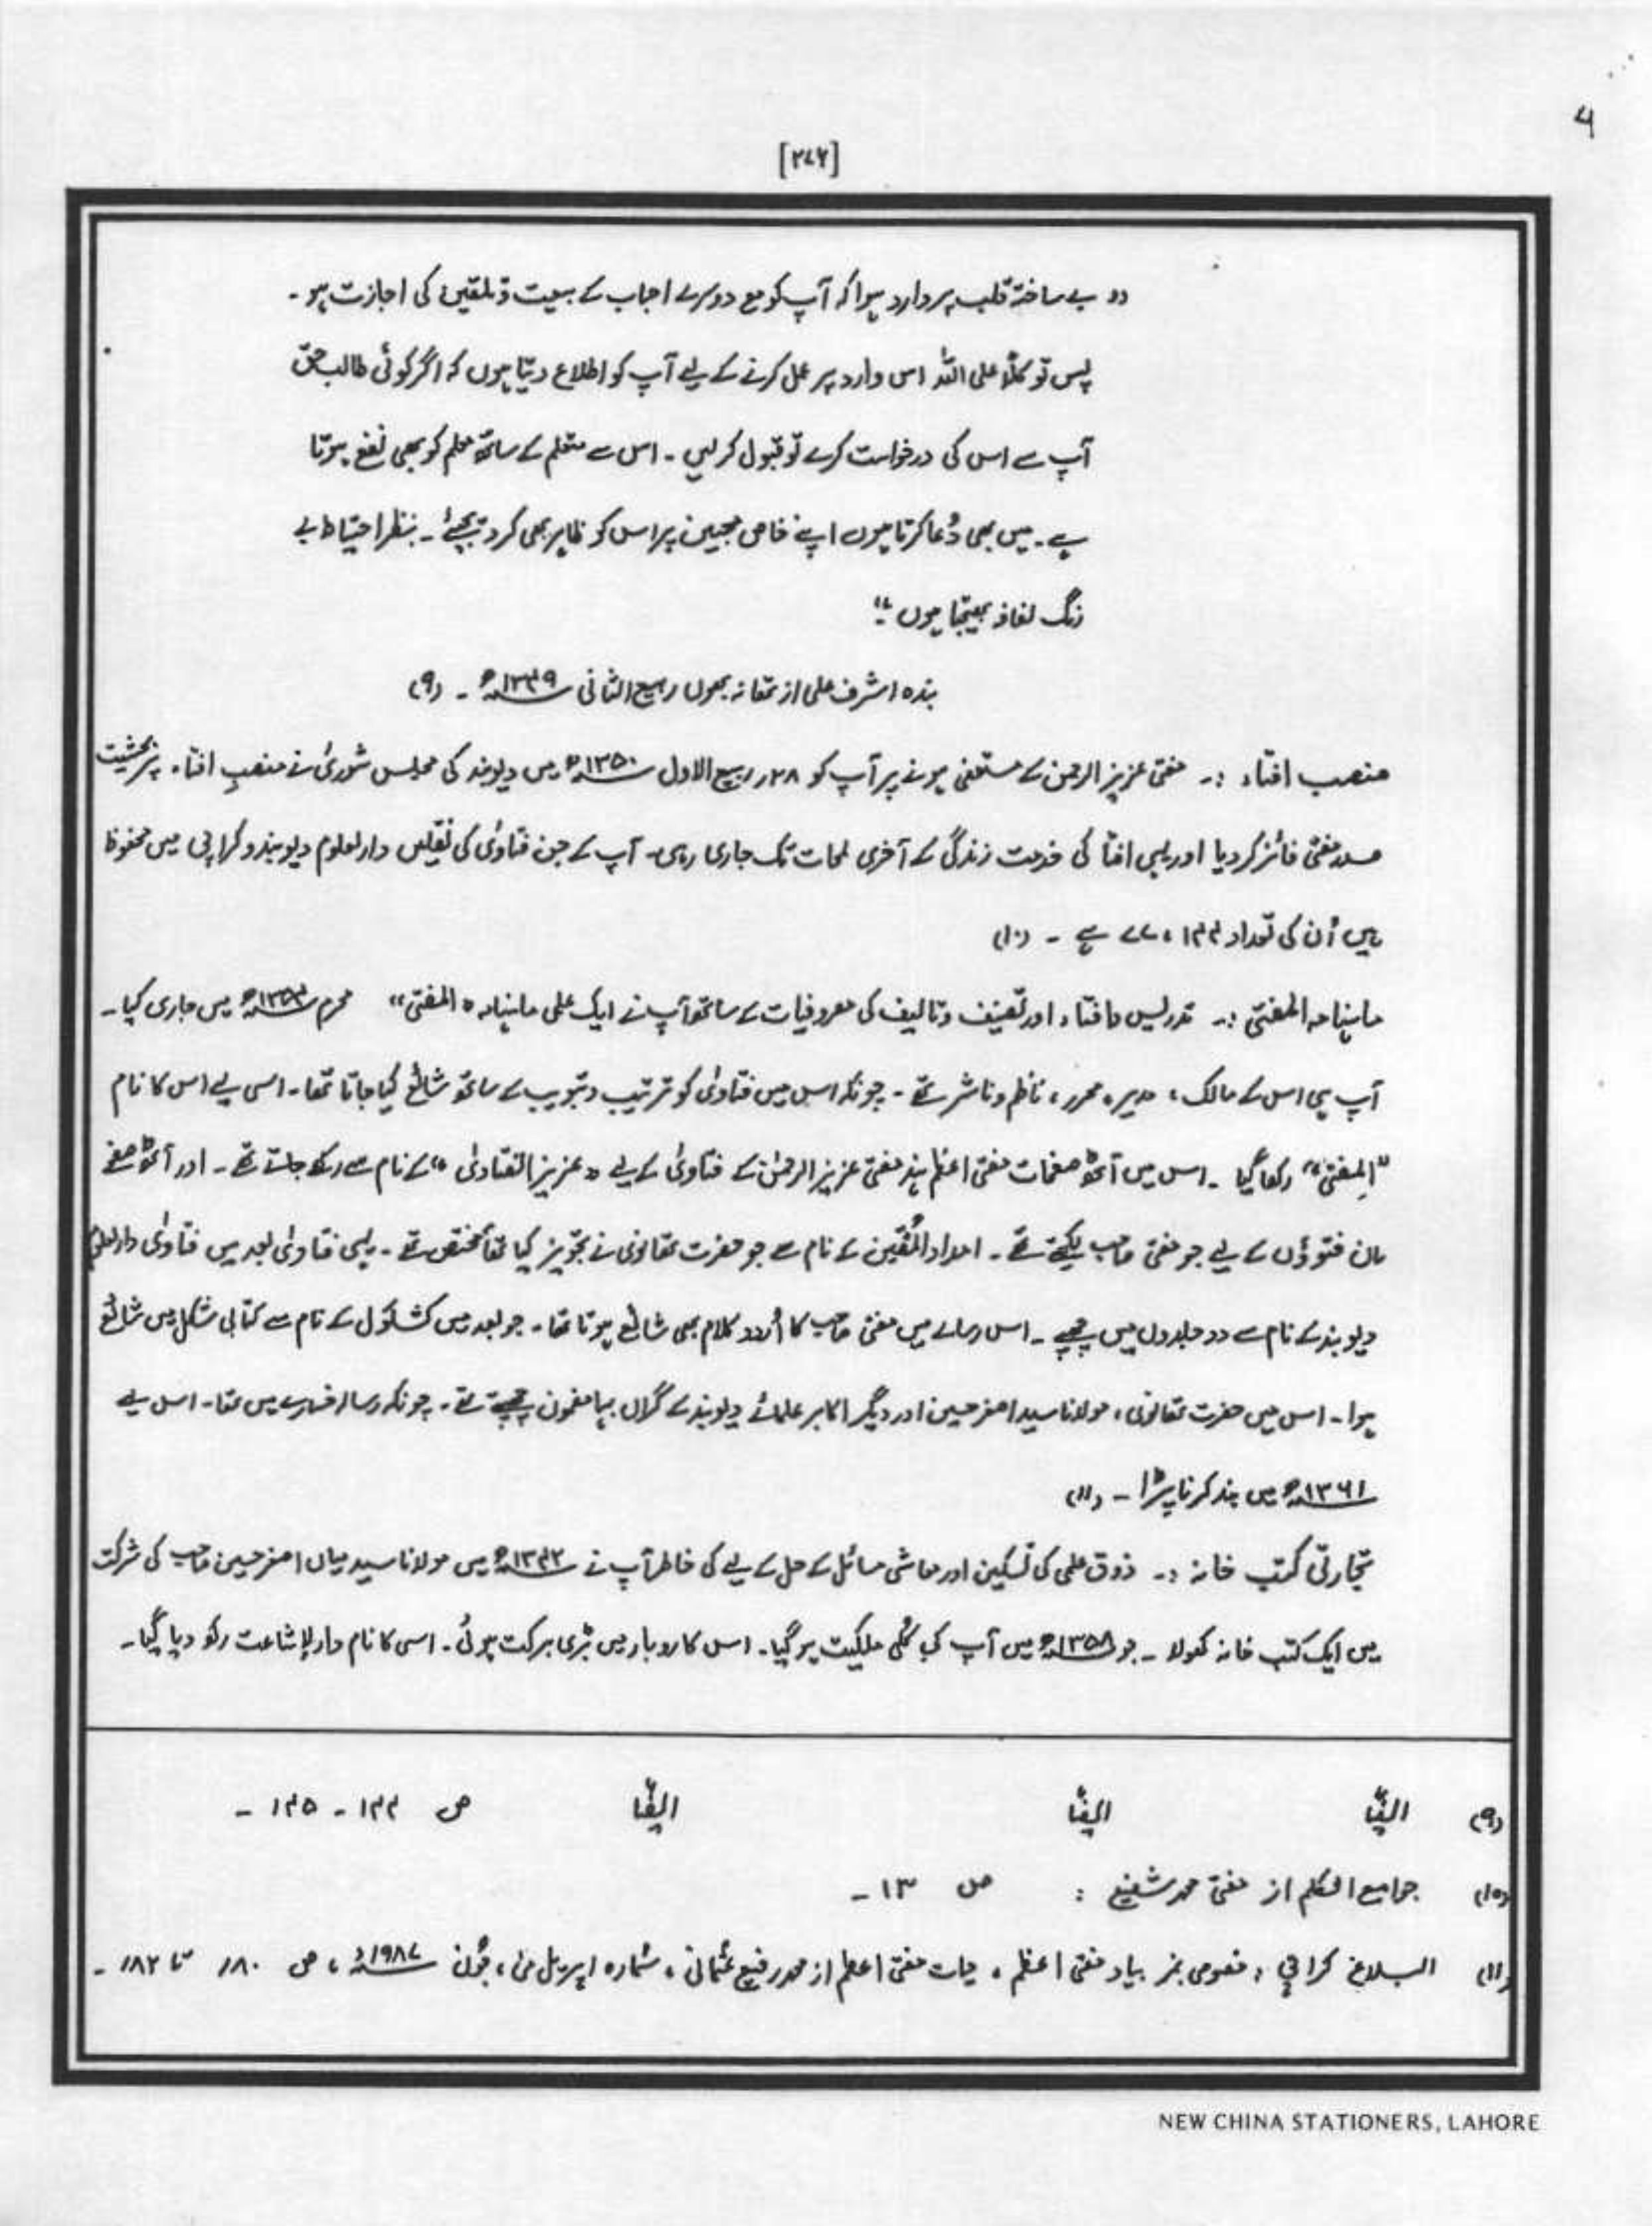 ۶
[۲۷۶]
" بے ساختہ قلب پر وارد ہوا کہ آپ کو مع دوسرے احباب کے بیعت و تلقین کی اجازت ہو ۔
پس توکلاً علی اللہ اس وارد پر عمل کرنے کے لیے آپ کو اطلاع دیتا ہوں کہ اگر کوئی طالب حق
آپ سے اس کی درخواست کرے تو قبول کر لیں ۔ اس سے متعلم کے ساتھ معلم کو بھی نفع ہوتا
ہے ۔ میں بھی دُعا کرتا ہوں اپنے خاص محبین پر اس کو ظاہر بھی کر دیجیئے ۔ بنظر احتیاط بے
رنگ لفافہ بھیجتا ہوں "۔
بندہ اشرف علی از تھانہ بھون ربیع الثانی ۱۳۴۹ھ ۔ (۹)
منصب افتاء :۔ مفتی عزیز الرحمن کے مستعفی ہونے پر آپ کو ۲۸ ربیع الاول ۱۳۵۰ھ میں دیوبند کی مجلس شوریٰ نے منصبِ افتاء پر بحیثیت
صدر مفتی فائز کر دیا اور یہی افتا کی خدمت زندگی کے آخری لمحات تک جاری رہی ۔ آپ کے جن فتاویٰ کی نقلیں دارلعلوم دیوبند و کراچی میں محفوظ
ہیں اُن کی تعداد ۷۷،۱۴۴ ہے ۔ (۱۰)
ماہنامہ المفتی :۔ تدریس و افتاء اور تصنیف و تالیف کی مصروفیات کے ساتھ آپ نے ایک علمی ماہنامہ " المفتی " محرم ۱۳۵۴ھ میں جاری کیا ۔
آپ ہی اس کے مالک ، مدیر ، محرر ، ناظم و ناشر تھے ۔ چونکہ اس میں فتاویٰ کو ترتیب و تبویب کے ساتھ شائع کیا جاتا تھا ۔ اسی لیے اس کا نام
"المفتی" رکھا گیا ۔ اس میں آٹھ صفحات مفتی اعظم ہند مفتی عزیز الرحمٰن کے فتاویٰ کے لیے " عزیز الفتاویٰ " کے نام سے رکھے جاتے تھے ۔ اور آٹھ صفحے
ان فتوؤں کے لیے جو مفتی صاحب لکھتے تھے ۔ امداد المُفتین کے نام سے جو حضرت تھانوی نے تجویز کیا تھا مختص تھے ۔ یہی فتاویٰ بعد میں فتاویٰ دارلعلوم
دیوبند کے نام سے دو جلدوں میں چھپے ۔ اس رسالے میں مفتی صاحب کا اُردو کلام بھی شائع ہوتا تھا ۔ جو بعد میں کشکول کے نام سے کتابی شکل میں شائع
ہوا ۔ اس میں حضرت تھانوی ، مولانا سید اصغر حسین اور دیگر اکابر علمائے دیوبند کے گراں بہا مضمون چھپتے تھے ۔ چونکہ رسالہ خسارے میں تھا ۔ اس لیے
۱۳۶۱ھ میں بند کرنا پڑا ۔ (۱۱)
تجارتی کتب خانہ :۔ ذوق علمی کی تسکین اور معاشی مسائل کے حل کے لیے کی خاطر آپ نے ۱۳۴۲ھ میں مولانا سید میاں اصغر حسین صاحب کی شرکت
میں ایک کتب خانہ کھولا ۔ جو ۱۳۵۸ھ میں آپ کی کُلی ملکیت ہو گیا ۔ اس کاروبار میں بڑی برکت ہوئی ۔ اسی کا نام دارلاشاعت رکھ دیا گیا ۔
(۹) ایضاً ایضاً ایضاً ص ۱۴۴ ۔ ۱۴۵ ۔
(۱۰) جوامع الکلم از مفتی محمد شفیع : ص ۱۳ ۔
(۱۱) البلاغ کراچی ، خصوصی نمبر بیاد مفتی اعظم ، حیات مفتی اعظم از محمد رفیع عثمانی ، شمارہ اپریل مئی ، جُون ۱۹۸۷ء ، ص ۱۸۰ تا ۱۸۲ ۔
NEW CHINA STATIONERS, LAHORE